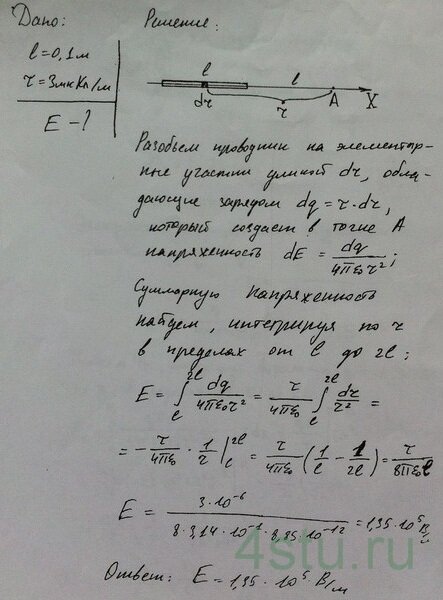 Дано:
Решение:
l=0,1м
τ=3мкКл/м
E-?
l
l
dr
r
A
X
Разобьем проводник на элементар-
ные участки длиной dr, обла-
дающие зарядом dq = τ·dr,
который создает в точке A
напряженность dE = dq/4πε₀r²;
Суммарную напряженность
найдем, интегрируя по r
в пределах от l до 2l:
E = ∫ₗ²ˡ dq/4πε₀r² = τ/4πε₀ ∫ₗ²ˡ dr/r² =
= -τ/4πε₀ · 1/r |ₗ²ˡ = τ/4πε₀ (1/l - 1/2l) = τ/8πε₀l
E = 3·10⁻⁶/8·3,14·10⁻¹·8,85·10⁻¹² = 1,35·10⁵ В/м
4stu.ru
Ответ: E = 1,35·10⁵ В/м